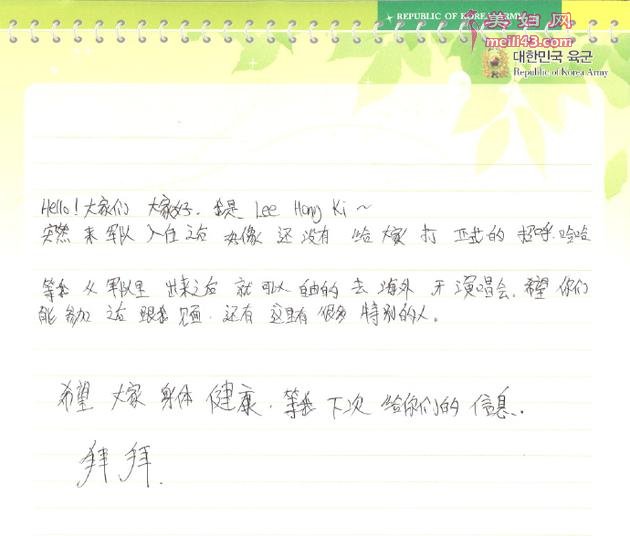 REPUBLIC OF KOREA ARMY
美妇网
meili43.com
대한민국 육군
Republic of Korea Army
Hello! 大家们 大家好. 我是 Lee Hong Ki ~
突然 来 军队 入伍 之后 好像 还 没有 给 大家 打 正式的 招呼. 哈哈
等我 从 军队里 出来之后 就 可以 自由的 去 海外 开 演唱会. 希望 你们
能 参加 之后 跟我 见面. 还有 这里 有 很多 特别的人。
希望 大家 身体 健康. 等我 下次 给你们的 信息.
拜拜.